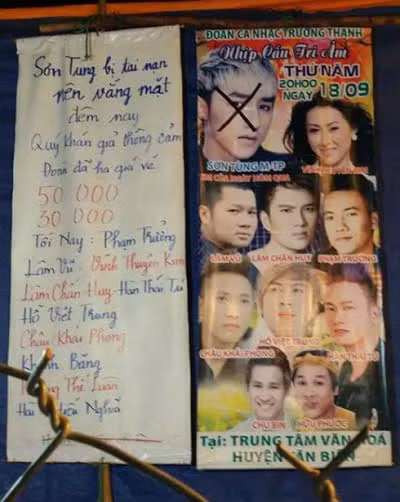 Sơn Tùng bị tai nạn
nên vắng mặt
đêm nay
Quý khán giả thông cảm
Đoàn đã hạ giá vé
50 000
30 000
Tối Nay: Phạm Trưởng
Lâm Vũ - Vĩnh Thuyên Kim
Lâm Chấn Huy - Hàn Thái Tú
Hồ Việt Trung
Châu Khải Phong
Khánh Băng
Thị Luân
Nghĩa
ĐOÀN CA NHẠC TRƯỜNG THANH
Nhịp Cầu Tri Âm
THỨ NĂM
20H00
NGÀY 18/09
SƠN TÙNG M-TP
EM CỦA NGÀY HÔM QUA
LÂM VŨ
LÂM CHẤN HUY
PHẠM TRƯỞNG
CHÂU KHẢI PHONG
HỒ VIỆT TRUNG
HÀN THÁI TÚ
CHU BIN
HỮU PHƯỚC
Tại: TRUNG TÂM VĂN HOÁ
HUYỆN TÂN BIÊN